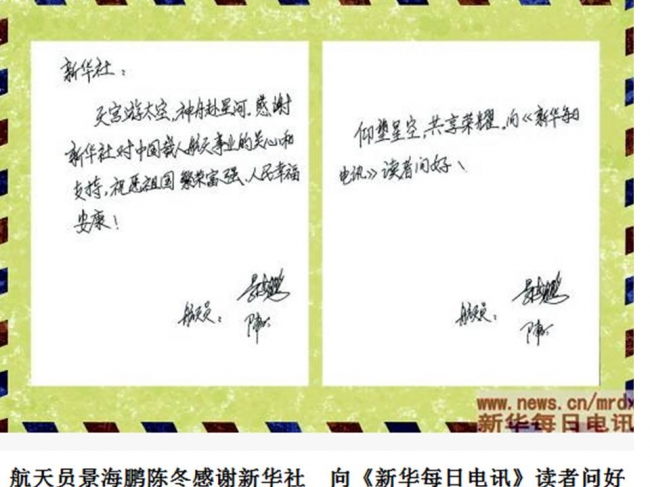 新华社：
天宫游太空，神舟赴星河。感谢
新华社对中国载人航天事业的关心和
支持，祝愿祖国繁荣富强、人民幸福
安康！
航天员：景海鹏
陈冬
仰望星空，共享荣耀，向《新华每日
电讯》读者问好！
航天员：景海鹏
陈冬
www.news.cn/mrdx
新华每日电讯
航天员景海鹏陈冬感谢新华社 向《新华每日电讯》读者问好